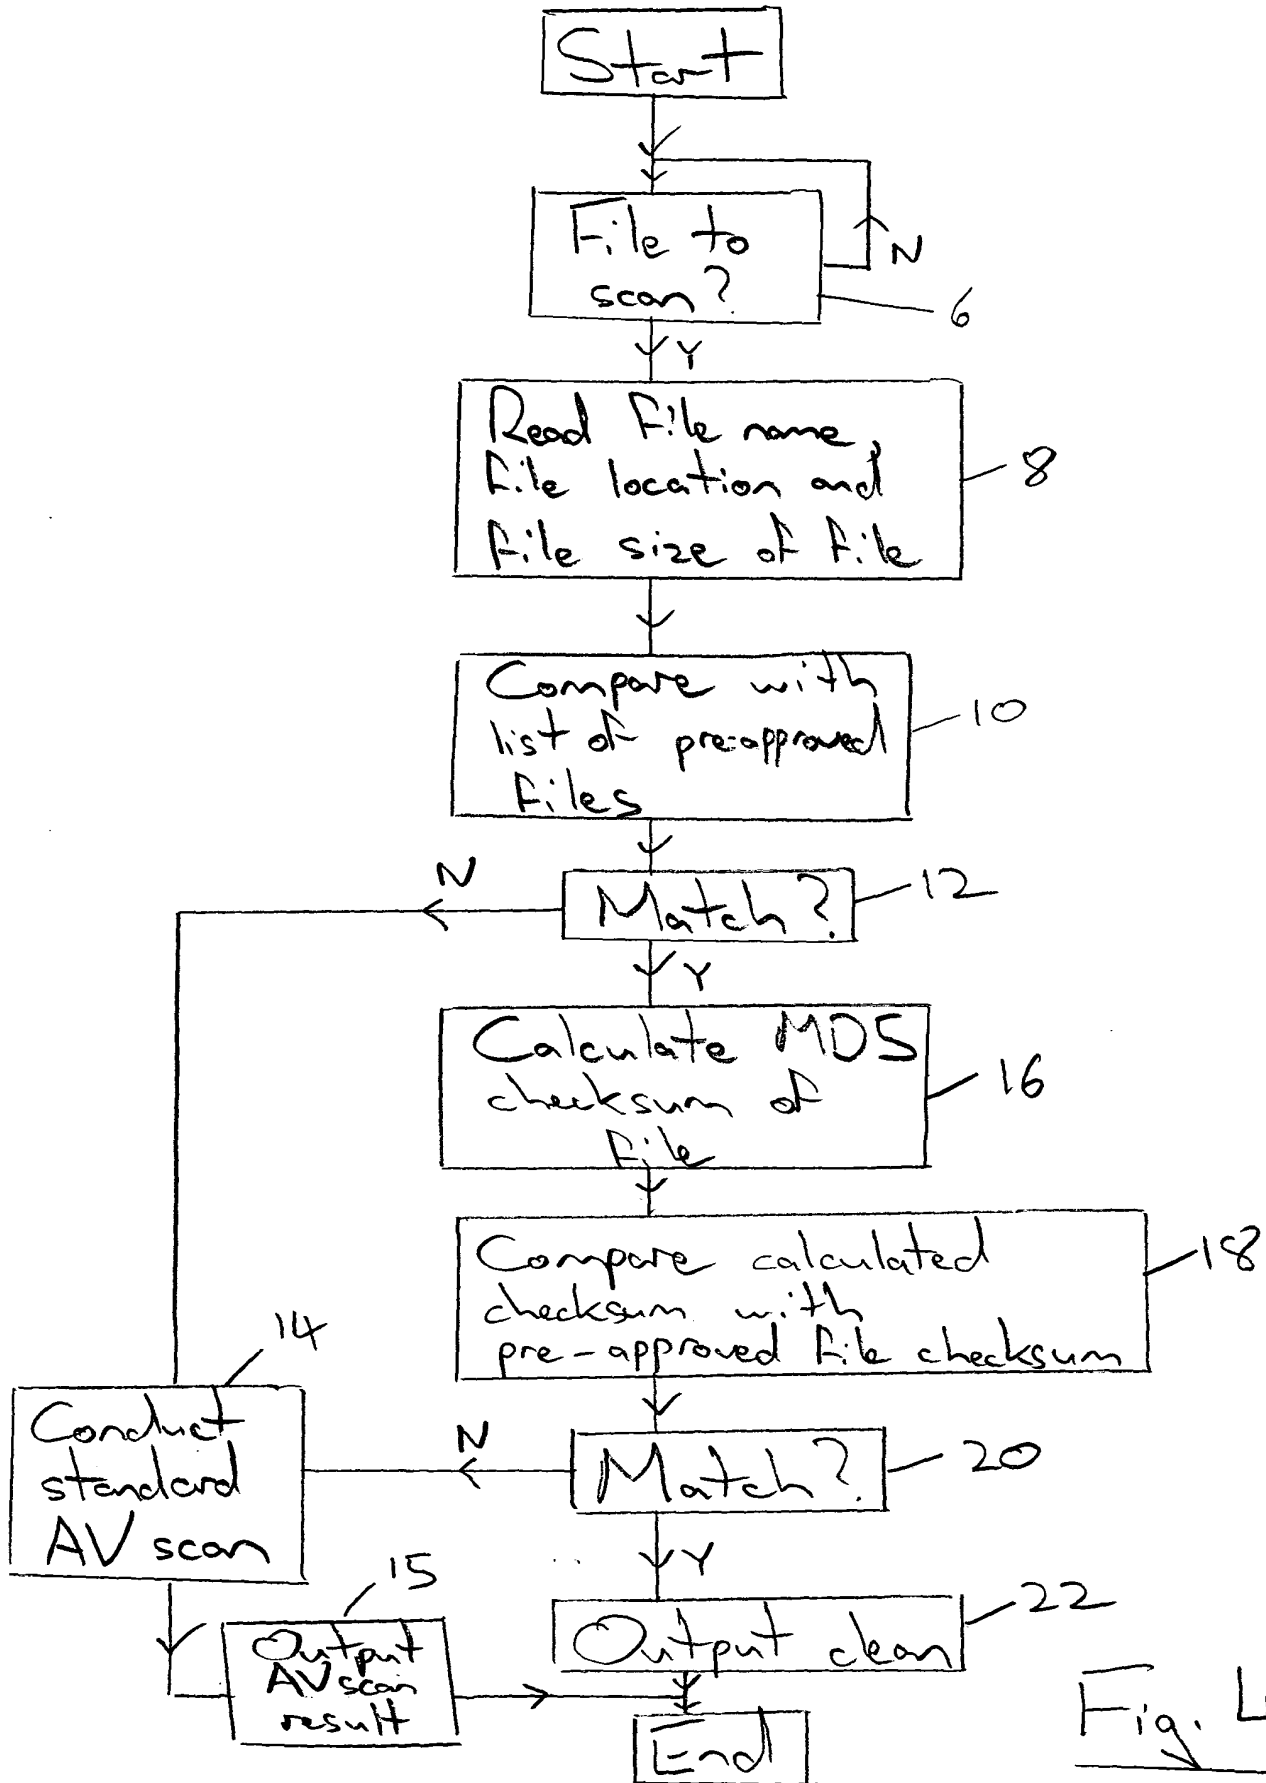 Start
File to
scan?
N
6
Y
Read File name,
File location and
File size of File
8
Compare with
list of pre-approved
Files
10
N
Match?
12
Y
Calculate MD5
checksum of
File
16
Compare calculated
checksum with
pre-approved File checksum
18
14
Conduct
standard
AV scan
N
Match?
20
Y
15
Output
AV scan
result
Output clean
22
End
Fig. 4